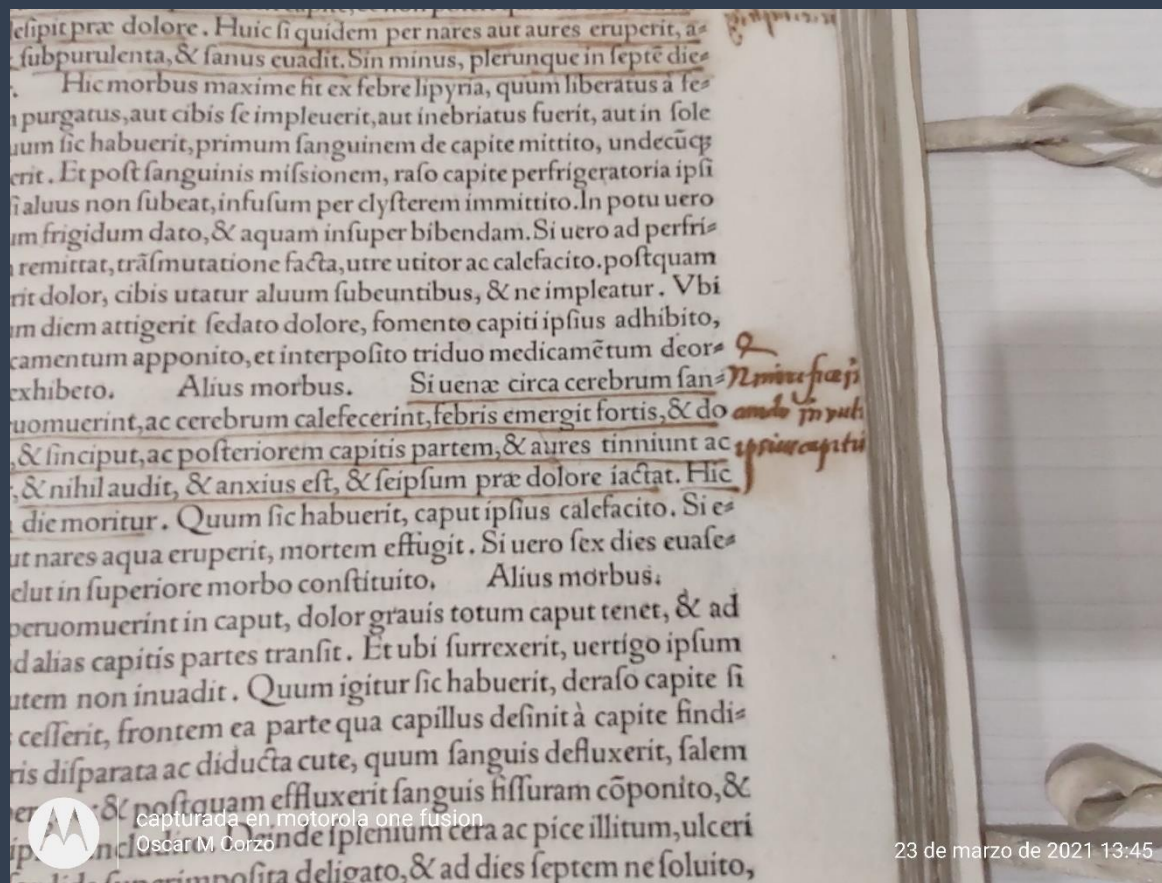 elipit præ dolore. Huic ſi quidem per nares aut aures eruperit, a⸗
ſubpurulenta, & ſanus euadit. Sin minus, plerunque in ſeptē die⸗
. Hic morbus maxime fit ex febre lipyria, quum liberatus á fe⸗
purgatus, aut cibis ſe impleuerit, aut inebriatus fuerit, aut in ſole
uum ſic habuerit, primum ſanguinem de capite mittito, undecūqꝫ
erit. Et poſt ſanguinis miſsionem, raſo capite perfrigeratoria ipſi
ſi aluus non ſubeat, infuſum per clyſterem immittito. In potu uero
um frigidum dato, & aquam inſuper bibendam. Si uero ad perfri⸗
remittat, trāſmutatione facta, utre utitor ac calefacito. poſtquam
rit dolor, cibis utatur aluum ſubeuntibus, & ne impleatur. Vbi
m diem attigerit ſedato dolore, fomento capiti ipſius adhibito,
camentum apponito, et interpoſito triduo medicamētum deor⸗
exhibeto. Alius morbus. Si uenæ circa cerebrum ſan⸗
uomuerint, ac cerebrum calefecerint, febris emergit fortis, & do
, & ſinciput, ac poſteriorem capitis partem, & aures tinniunt ac
, & nihil audit, & anxius eſt, & ſeipſum præ dolore iactat. Hic
die moritur. Quum ſic habuerit, caput ipſius calefacito. Si e⸗
ut nares aqua eruperit, mortem effugit. Si uero ſex dies euaſe⸗
elut in ſuperiore morbo conſtituito. Alius morbus.
peruomuerint in caput, dolor grauis totum caput tenet, & ad
d alias capitis partes tranſit. Et ubi ſurrexerit, uertigo ipſum
utem non inuadit. Quum igitur ſic habuerit, deraſo capite ſi
ceſſerit, frontem ea parte qua capillus deſinit à capite findi⸗
ris diſparata ac diducta cute, quum ſanguis defluxerit, ſalem
& poſtquam effluxerit ſanguis fiſſuram cōponito, &
Deinde ſplenium cera ac pice illitum, ulceri
ſuperimpoſita deligato, & ad dies ſeptem ne ſoluito,
capturada en motorola one fusion
Oscar M Corzo
23 de marzo de 2021 13:45